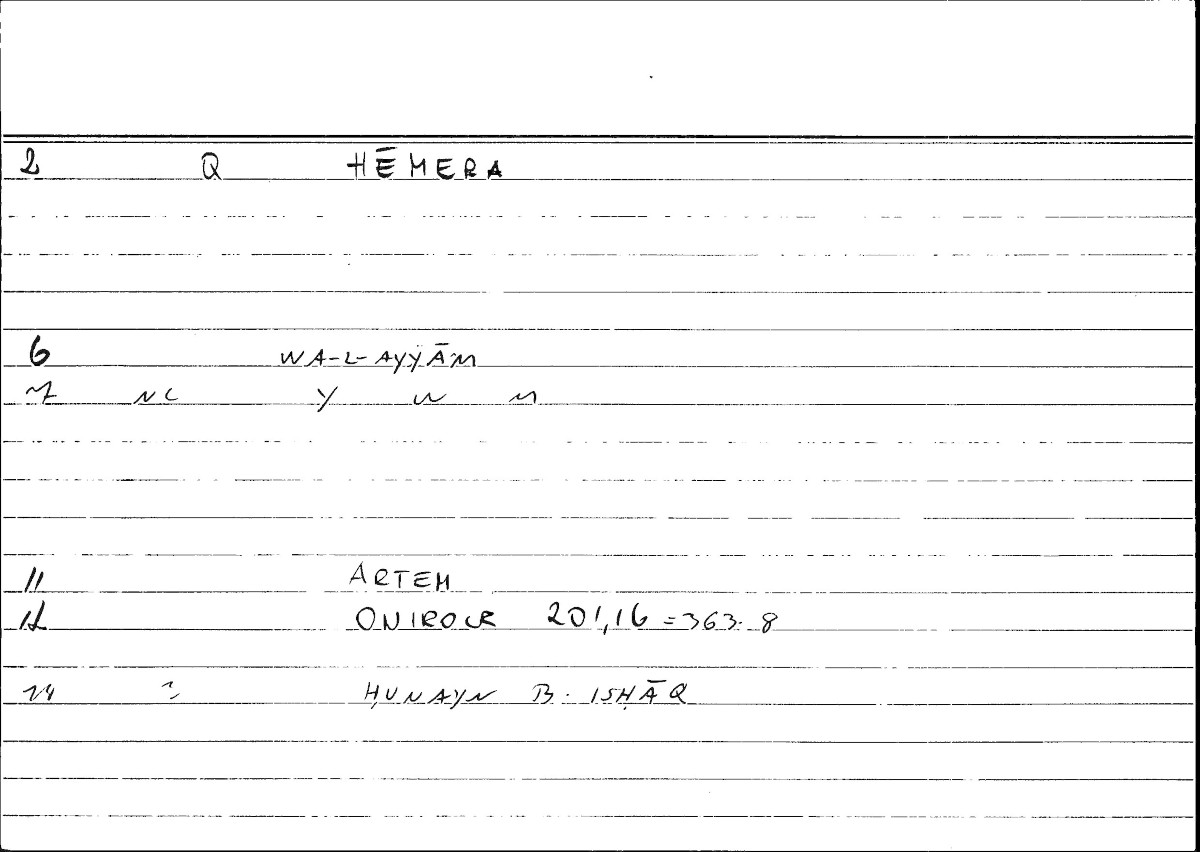 2 Q HĒMERA
6 WA-L-AYYĀM
7 NC Y W M
11 ARTEM
12 ONIROCR 201,16 = 363.8
14 HUNAYN B. ISḤĀQ